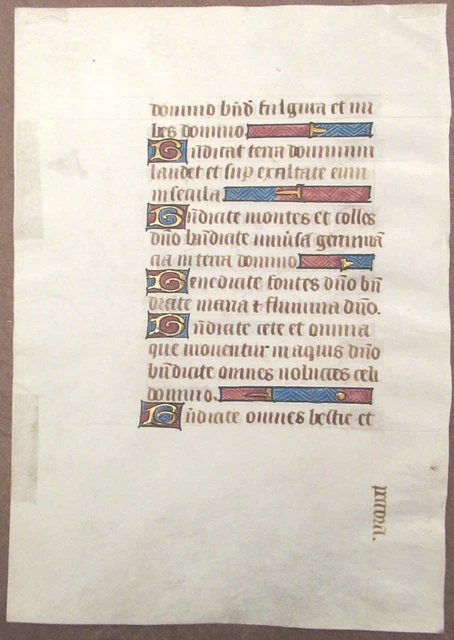 domino bñd fulgura et nu
bes domino
Bñdicat terra dominum
laudet et sup exaltate eum
in secula
Bñdicite montes et colles
dño bñdicite univ̄sa germinā
cia in terra domino
Benedicite fontes dño bñ
dicite maria & flumina dño.
Bñdicite cete et omnia
que moventur in aquis dño
bñdicite omnes volucres celi
domino.
Bñdicite omnes bestie et